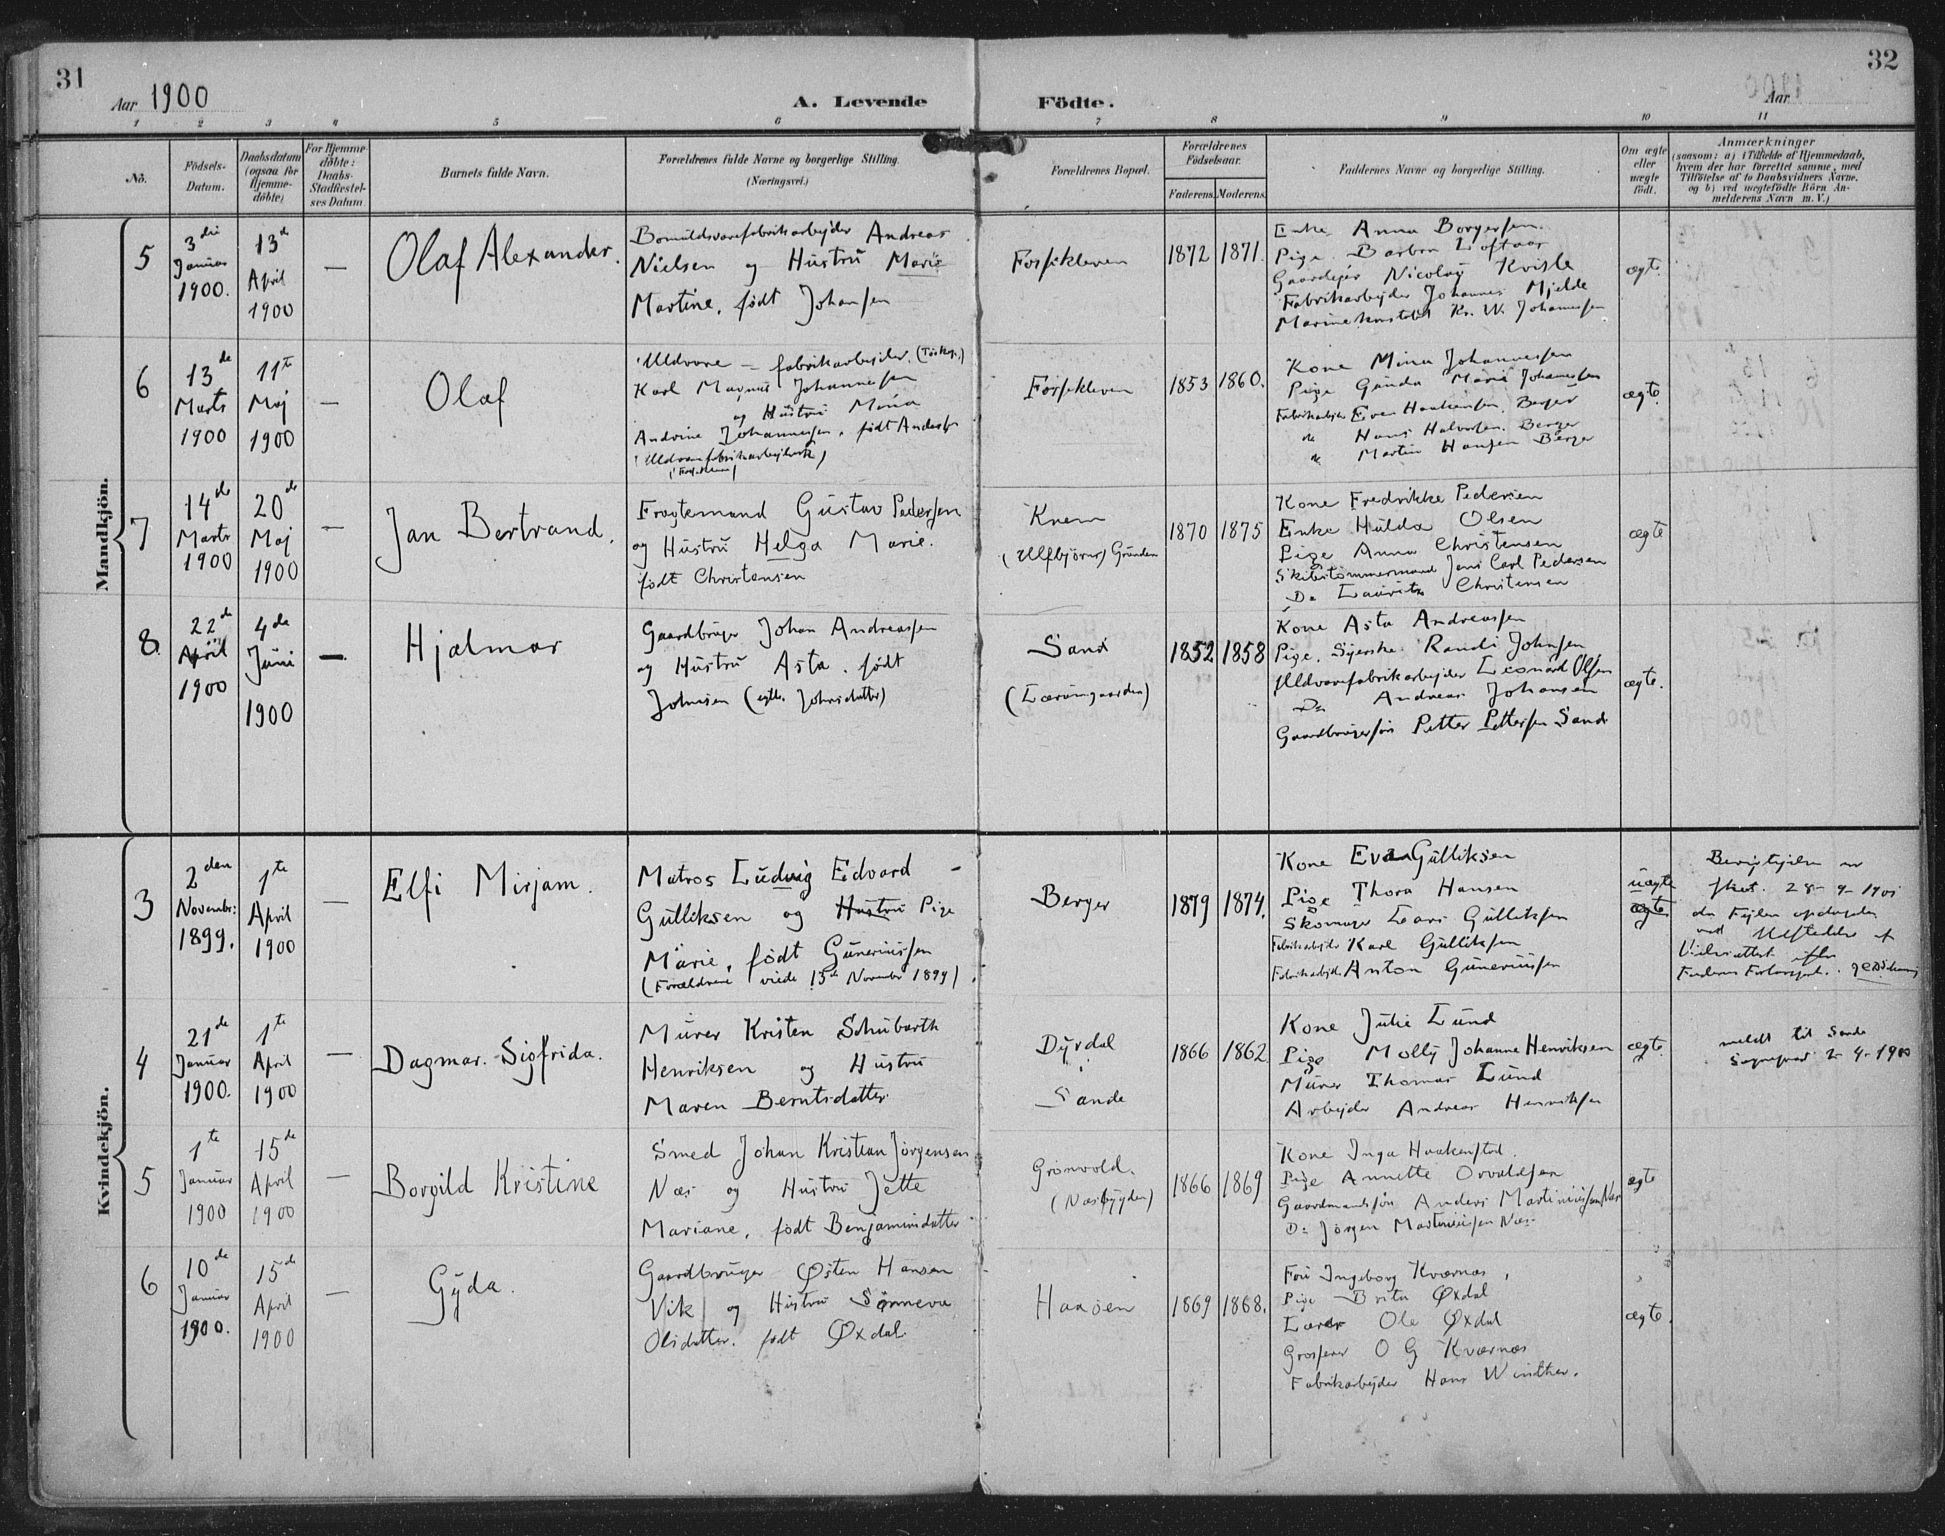 31
Aar 1900
A. Levende
Födte.
Aar
32
1 2 3 4 5 6 7 8 9 10 11
No.
Födsels-
Datum.
Daabsdatum
(ogsaa for
Hjemme-
döbte)
For Hjemme-
döbte:
Daabs-
Stadfæstel-
ses Datum
Barnets fulde Navn.
Forældrenes fulde Navne og borgerlige Stilling.
(Næringsvei.)
Forældrenes Bopæl.
Forældrenes
Födselsaar.
Faderens. Moderens.
Faddernes Navne og borgerlige Stilling.
Om ægte
eller
uægte
født.
Anmærkninger
(saasom: a) i Tilfælde af Hjemmedaab,
hvem der har forrettet samme, med
Tilföielse af to Daabsvidners Navne.
og b) ved uægtefödte Börn An-
melderens Navn m. V.)
Mandkjön.
5
3die
Januar
1900.
13de
April
1900
—
Olaf Alexander.
Bomuldsvarefabrikarbejder Andreas
Nielsen og Hustru Marie
Martine, født Johansen
Forsikleven
1872
1871.
Enke Anna Borgersen.
Pige Barbra Loftaas
Gaardejer Nicolay Kvisle
Fabrikarbejder Johannes Mjelde
Marinekonstabel Kr. W. Johannesen
ægte.
6
13de
Marts
1900
11te
Maj
1900
—
Olaf
Uldvare – fabrikarbejder.
Karl Magnus Johannesen
og Hustru Mina
Andrine Johannesen, født Anders
Forsikleven
1853
1860.
Kone Mina Johannesen
Pige Gunda Marie Johannesen
Fabrikarbejder Even Haakensen. Berger
do Hans Halvorsen. Berger
do Martin Hansen Berger
ægte.
7
14de
Marts
1900
20de
Maj
1900
—
Jan Bertrand.
Fragtemand Gustav Pedersen
og Hustru Helga Marie.
født Christensen
Knem
(Ulfbjörns) Grunden
1870
1875
Kone Fredrikke Pedersen
Enke Hulda Olsen
Pige Anna Christensen
Skibstømmermand Jens Carl Pedersen
Do Lauritz Christensen
ægte
8.
22de
April
1900
4de
Juni
1900
—
Hjalmar
Gaardbruger Johan Andreassen
og Hustru Asta. født
Johnsen (egtl. Johnsdatter)
Sand
(Lærumgaarden)
1852
1858
Kone Asta Andreassen
Pige. Syerske. Randi Johnsen
Uldvarefabrikarbejder Leonard Olsen
Do Andreas Johansen
Gaardbrugersøn Petter Pettersen Sand
ægte.
Kvindekjön.
3
2den
Novembr:
1899.
1te
April
1900
—
Elfi Mirjam.
Matros Ludvig Edvard –
Gulliksen og Hustru Pige
Marie, født Guneriussen
(Forældrene viede 15de November 1899).
Berger
1879
1874.
Kone Eva Gulliksen
Pige Thora Hansen
Skomager Lars Gulliksen
Fabrikarbejder Karl Gulliksen
Fabrikarbejd. Anton Guneriussen
uægte
ægte
da Fejlen opdagedes
4
21de
Januar
1900.
1te
April
1900
—
Dagmar. Sigfrida.
Murer Kristen Schubarth
Henriksen og Hustru
Maren Berntsdatter
Dyrdal
Sande
1866
1862
Kone Julie Lund
Pige Molly Johanne Henriksen
Murer Thomas Lund
Arbejder Andreas Henriksen
ægte
meldt til Sande
Sogneprest 2-4-1900
5
1te
Januar
1900
15de
April
1900
—
Borgild Kristine
Smed Johan Kristian Jörgensen
Næs og Hustru Jette
Mariane, født Benjaminsdatter
Grönvold.
(Næsbygden)
1866
1869
Kone Inga Haakenstad.
Pige Annette Osvaldsen
Gaardmandssøn Anders Martiniussen Næs
Do Jörgen Martiniussen Næs
ægte
6
10de
Januar
1900.
15de
April
1900
—
Gyda.
Gaardbruger Østen Hansen
Vik og Hustru Sönneva
Olsdatter. født Øxdal.
Haasen
1869
1868.
Fru Ingeborg Kværnæs,
Pige Brita Øxdal
Lærer Ole Øxdal
Grosserer O G Kværnæs
Fabrikarbejder Hans Windther.
ægte.